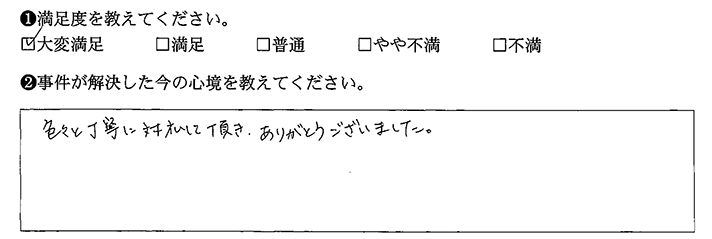 ❶満足度を教えてください。
☑大変満足 □満足 □普通 □やや不満 □不満
❷事件が解決した今の心境を教えてください。
色々と丁寧に対応して頂き、ありがとうございました。